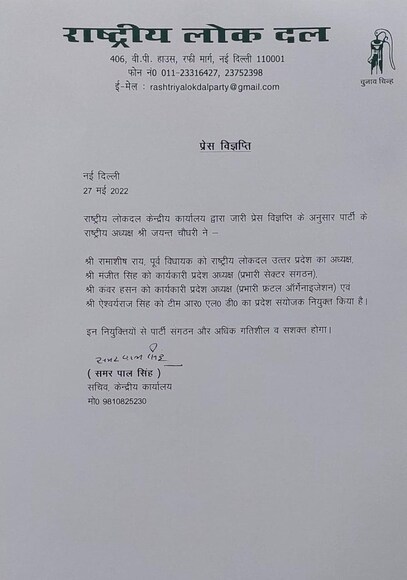 राष्ट्रीय लोक दल
406, वी.पी. हाउस, रफी मार्ग, नई दिल्ली 110001
फोन नं0 011-23316427, 23752398
ई-मेल : rashtriyalokdalparty@gmail.com
चुनाव चिन्ह
प्रेस विज्ञप्ति
नई दिल्ली
27 मई 2022
राष्ट्रीय लोकदल केन्द्रीय कार्यालय द्वारा जारी प्रेस विज्ञप्ति के अनुसार पार्टी के
राष्ट्रीय अध्यक्ष श्री जयन्त चौधरी ने –
श्री रामाशीष राय, पूर्व विधायक को राष्ट्रीय लोकदल उत्तर प्रदेश का अध्यक्ष,
श्री मंजीत सिंह को कार्यकारी प्रदेश अध्यक्ष (प्रभारी सेक्टर संगठन),
श्री कंवर हसन को कार्यकारी प्रदेश अध्यक्ष (प्रभारी फ्रंटल ऑर्गेनाइजेशन) एवं
श्री ऐश्वर्यराज सिंह को टीम आर0 एल0 डी0 का प्रदेश संयोजक नियुक्त किया है।
इन नियुक्तियों से पार्टी संगठन और अधिक गतिशील व सशक्त होगा।
समर पाल सिंह
( समर पाल सिंह )
सचिव, केन्द्रीय कार्यालय
मो0 9810825230